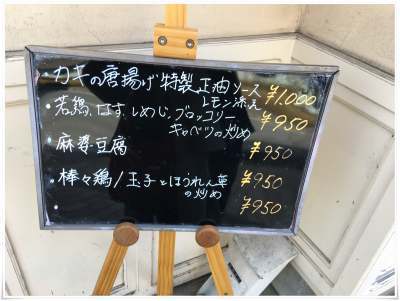 ・カキの唐揚げ 特製 正油ソース
レモン添え ¥1.000
・若鶏、はす、しめじ、ブロッコリー
キャベツの炒め ¥950
・麻婆豆腐 ¥950
・棒々鶏/玉子とほうれん草 ¥950
の炒め ¥950